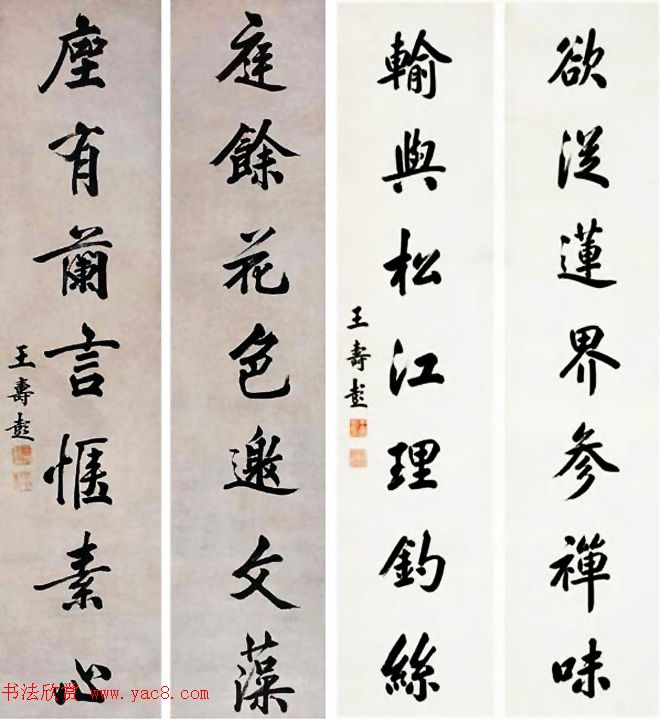 欲从蓮界參禪味
輸與松江理釣絲
王壽彭
庭餘花色邀文藻
座有蘭言愜素心
王壽彭
书法欣赏 www.yac8.com